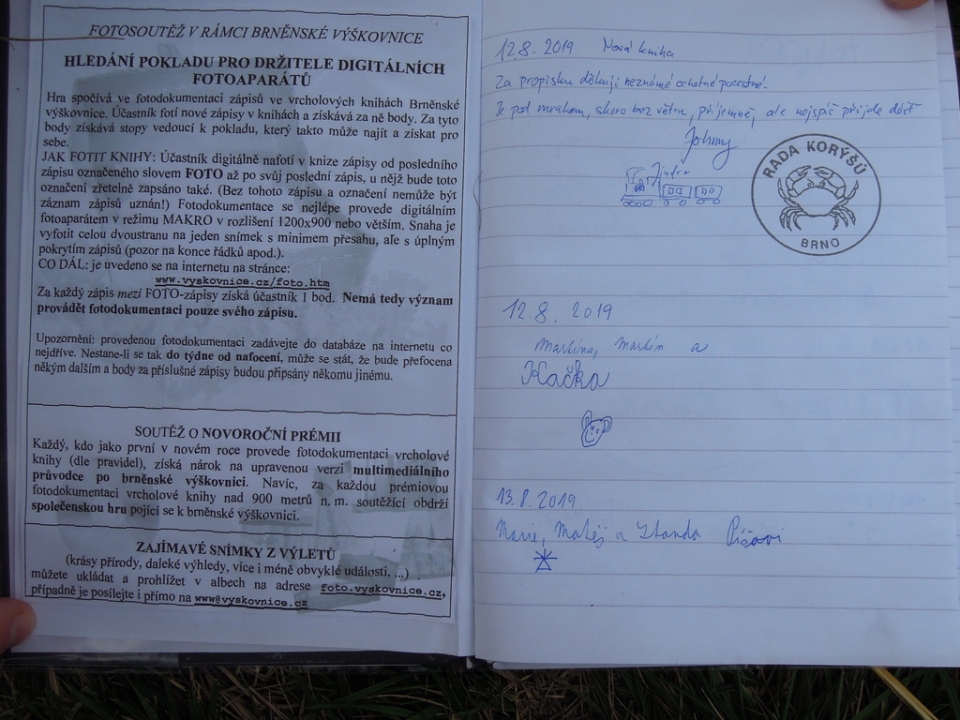 FOTOSOUTĚŽ V RÁMCI BRNĚNSKÉ VÝŠKOVNICE
HLEDÁNÍ POKLADU PRO DRŽITELE DIGITÁLNÍCH
FOTOAPARÁTŮ
Hra spočívá ve fotodokumentaci zápisů ve vrcholových knihách Brněnské
výškovnice. Účastník fotí nové zápisy v knihách a získává za ně body. Za tyto
body získává stopy vedoucí k pokladu, který takto může najít a získat pro
sebe.
JAK FOTIT KNIHY: Účastník digitálně nafotí v knize zápisy od posledního
zápisu označeného slovem FOTO až po svůj poslední zápis, u nějž bude toto
označení zřetelně zapsáno také. (Bez tohoto zápisu a označení nemůže být
záznam zápisů uznán!) Fotodokumentace se nejlépe provede digitálním
fotoaparátem v režimu MAKRO v rozlišení 1200x900 nebo větším. Snaha je
vyfotit celou dvoustranu na jeden snímek s minimem přesahu, ale s úplným
pokrytím zápisů (pozor na konce řádků apod.).
CO DÁL: je uvedeno se na internetu na stránce:
www.vyskovnice.cz/foto.htm
Za každý zápis mezi FOTO-zápisy získá účastník 1 bod. Nemá tedy význam
provádět fotodokumentaci pouze svého zápisu.
Upozornění: provedenou fotodokumentaci zadávejte do databáze na internetu co
nejdříve. Nestane-li se tak do týdne od nafocení, může se stát, že bude přefocena
někým dalším a body za příslušné zápisy budou připsány někomu jinému.
SOUTĚŽ O NOVOROČNÍ PRÉMII
Každý, kdo jako první v novém roce provede fotodokumentaci vrcholové
knihy (dle pravidel), získá nárok na upravenou verzi multimediálního
průvodce po brněnské výškovnici. Navíc, za každou prémiovou
fotodokumentaci vrcholové knihy nad 900 metrů n. m. soutěžící obdrží
společenskou hru pojící se k brněnské výškovnici.
ZAJÍMAVÉ SNÍMKY Z VÝLETŮ
(krásy přírody, daleké výhledy, více i méně obvyklé události, ...)
můžete ukládat a prohlížet v albech na adrese foto.vyskovnice.cz,
případně je posílejte i přímo na www@vyskovnice.cz
12.8. 2019 Nová kniha
Za propisku děkuji neznámé ochotné
Je pod mrakem, skoro bez větru, příjemně, ale nejspíš přijde déšť
Johnny
Jindra
RADA KORÝŠŮ
BRNO
12.8. 2019
Martina, Martin a
Kačka
13.8.2019
Marie, Matěj a